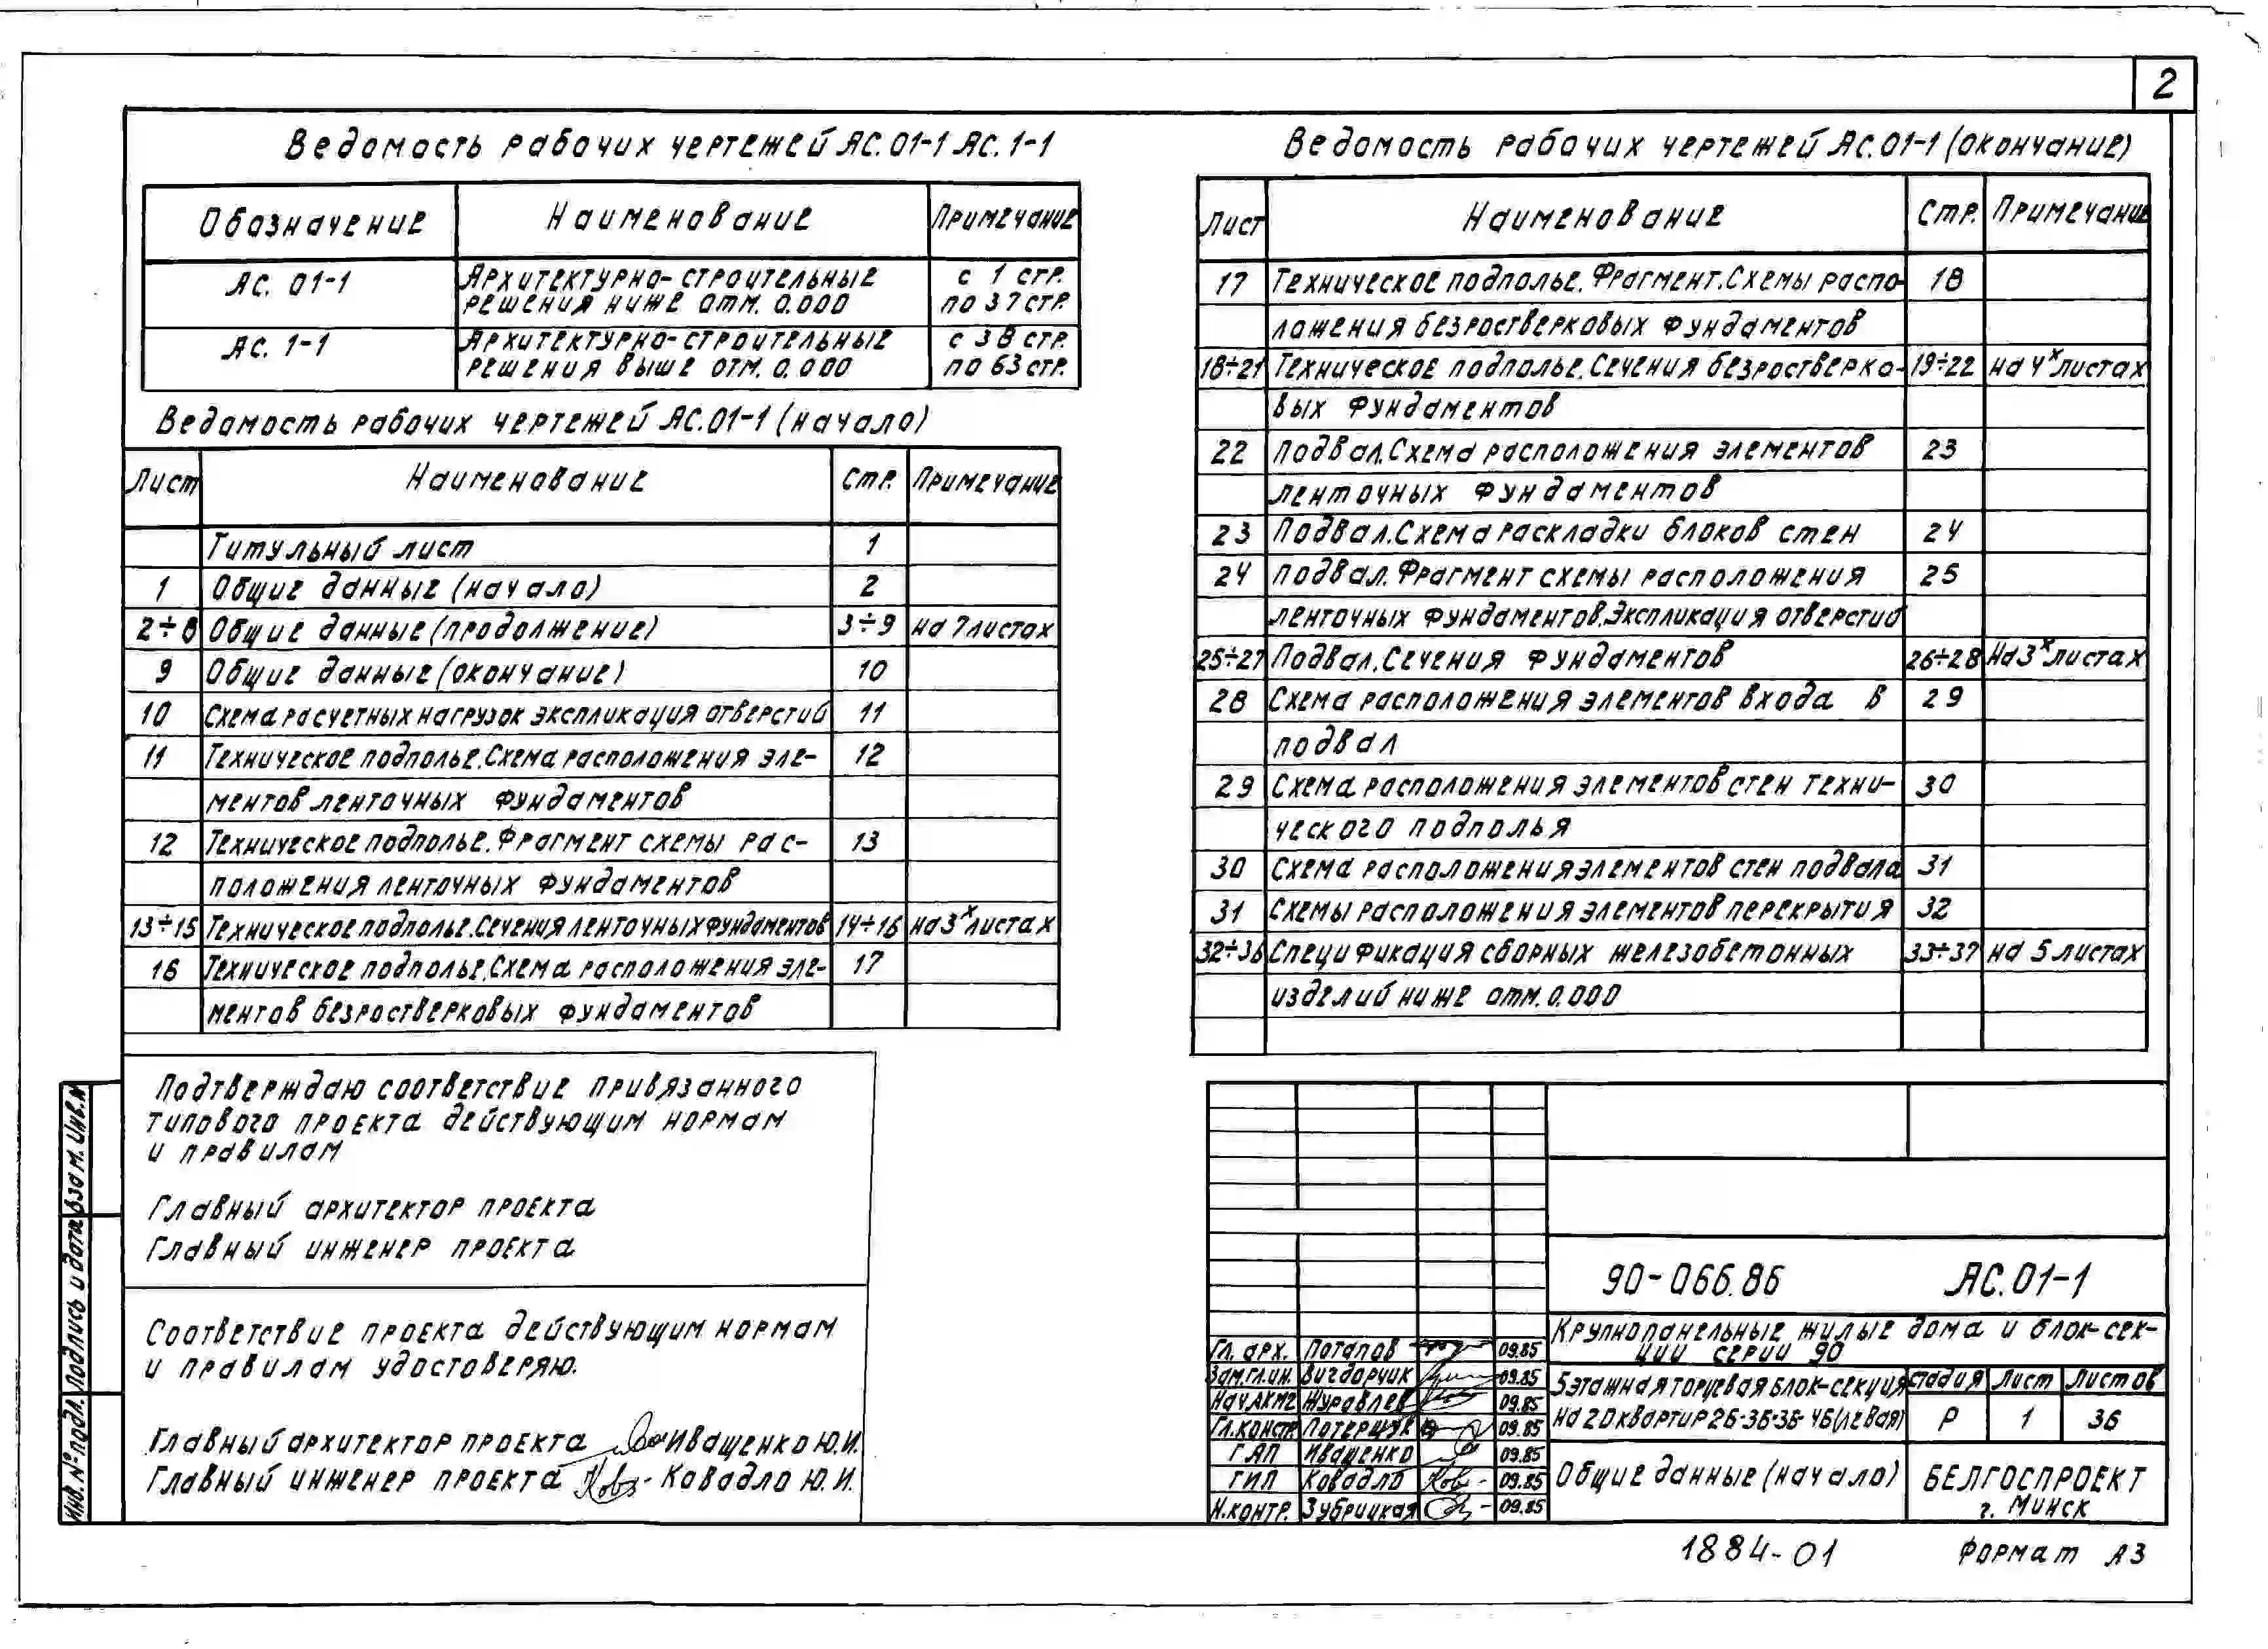 2
Ведомость рабочих чертежей АС.01-1 АС.1-1
Обозначение Наименование Примечание
АС. 01-1 Архитектурно-строительные с 1 стр.
решения ниже отм. 0.000 по 37 стр.
АС. 1-1 Архитектурно-строительные с 38 стр.
решения выше отм. 0.000 по 63 стр.
Ведомость рабочих чертежей АС.01-1 (начало)
Лист Наименование Стр. Примечание
Титульный лист 1
1 Общие данные (начало) 2
2÷8 Общие данные (продолжение) 3÷9 на 7 листах
9 Общие данные (окончание) 10
10 Схема расчетных нагрузок экспликация отверстий 11
11 Техническое подполье. Схема расположения эле- 12
ментов ленточных фундаментов
12 Техническое подполье. Фрагмент схемы рас- 13
положения ленточных фундаментов
13÷15 Техническое подполье. Сечения ленточных фундаментов 14÷16 на 3х листах
16 Техническое подполье. Схема расположения эле- 17
ментов безростверковых фундаментов
Ведомость рабочих чертежей АС.01-1 (окончание)
Лист Наименование Стр. Примечание
17 Техническое подполье. Фрагмент. Схемы распо- 18
ложения безростверковых фундаментов
18÷21 Техническое подполье. Сечения безростверко- 19÷22 на 4х листах
вых фундаментов
22 Подвал. Схема расположения элементов 23
ленточных фундаментов
23 Подвал. Схема раскладки блоков стен 24
24 Подвал. Фрагмент схемы расположения 25
ленточных фундаментов. Экспликация отверстий
25÷27 Подвал. Сечения фундаментов 26÷28 На 3х листах
28 Схема расположения элементов входа в 29
подвал
29 Схема расположения элементов стен техни- 30
ческого подполья
30 Схема расположения элементов стен подвала 31
31 Схемы расположения элементов перекрытия 32
32÷36 Спецификация сборных железобетонных 33÷37 на 5 листах
изделий ниже отм. 0.000
Подтверждаю соответствие привязанного
типового проекта действующим нормам
и правилам
Главный архитектор проекта
Главный инженер проекта
Соответствие проекта действующим нормам
и правилам удостоверяю.
Главный архитектор проекта Иващенко Ю.И.
Главный инженер проекта Ковадло Ю.И.
Взам. инв.№
Подпись и дата
Инв. № подл.
90-066.86 АС.01-1
Крупнопанельные жилые дома и блок-сек-
ции серии 90
Гл. арх. Потапов 09.85
Зам.гл.ин. Вигдорчик 09.85
Нач.АКМ2 Журавлев 09.85
Гл.констр. Потерщук 09.85
ГАП Иващенко 09.85
ГИП Ковадло 09.85
Н.контр. Зубрицкая 09.85
5 этажная торцевая блок-секция
на 20 квартир 2Б-3Б-3Б-4Б (левая)
Стадия Лист Листов
Р 1 36
Общие данные (начало)
БЕЛГОСПРОЕКТ
г. Минск
1884-01 Формат А3